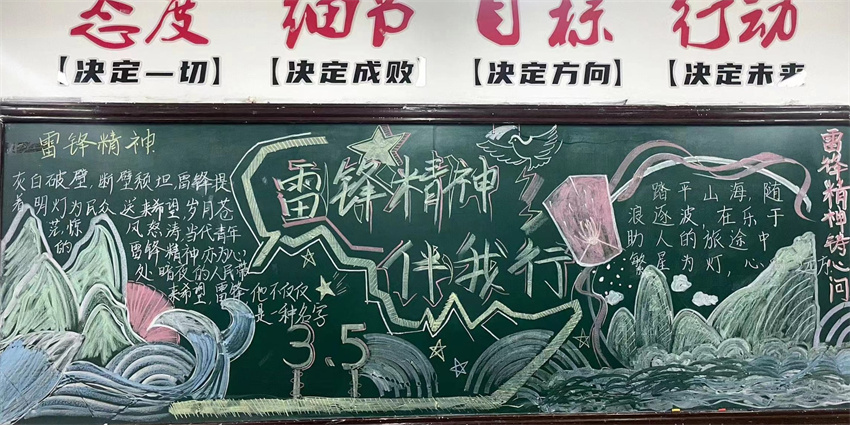 态度 细节 目标 行动
【决定一切】 【决定成败】 【决定方向】 【决定未来】
雷锋精神
灰白破壁,断壁颓垣,雷锋提
着明灯为民众送来希望,岁月苍
茫,惊风怒涛,当代青年
的雷锋精神亦为心
处暗夜的人民带
来希望 雷锋,他不仅仅
是一种名字
雷锋精神
伴我行
3.5
踏平山海,随
浪逐波,在乐于
助人的旅途中
繁星为灯,心
雷锋精神铸心间